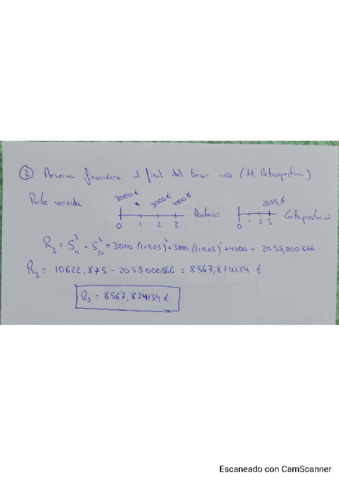 ② Reserva financiera al final del tercer año (M. Retrospectivo)
3000€ 3000€ 4000€ 2055€
Parte vencida Prestación Contraprestación
0 1 2 3 0 1 2 3
R₃ = S₁ - S₂ = 3000 (1+0,03)² + 3000 (1+0,03)¹ + 4000 - 2055,000866
R₃ = 10622,875 - 2055,000866 = 8567,874134 €
R₃ = 8567,874134 €
Escaneado con CamScanner